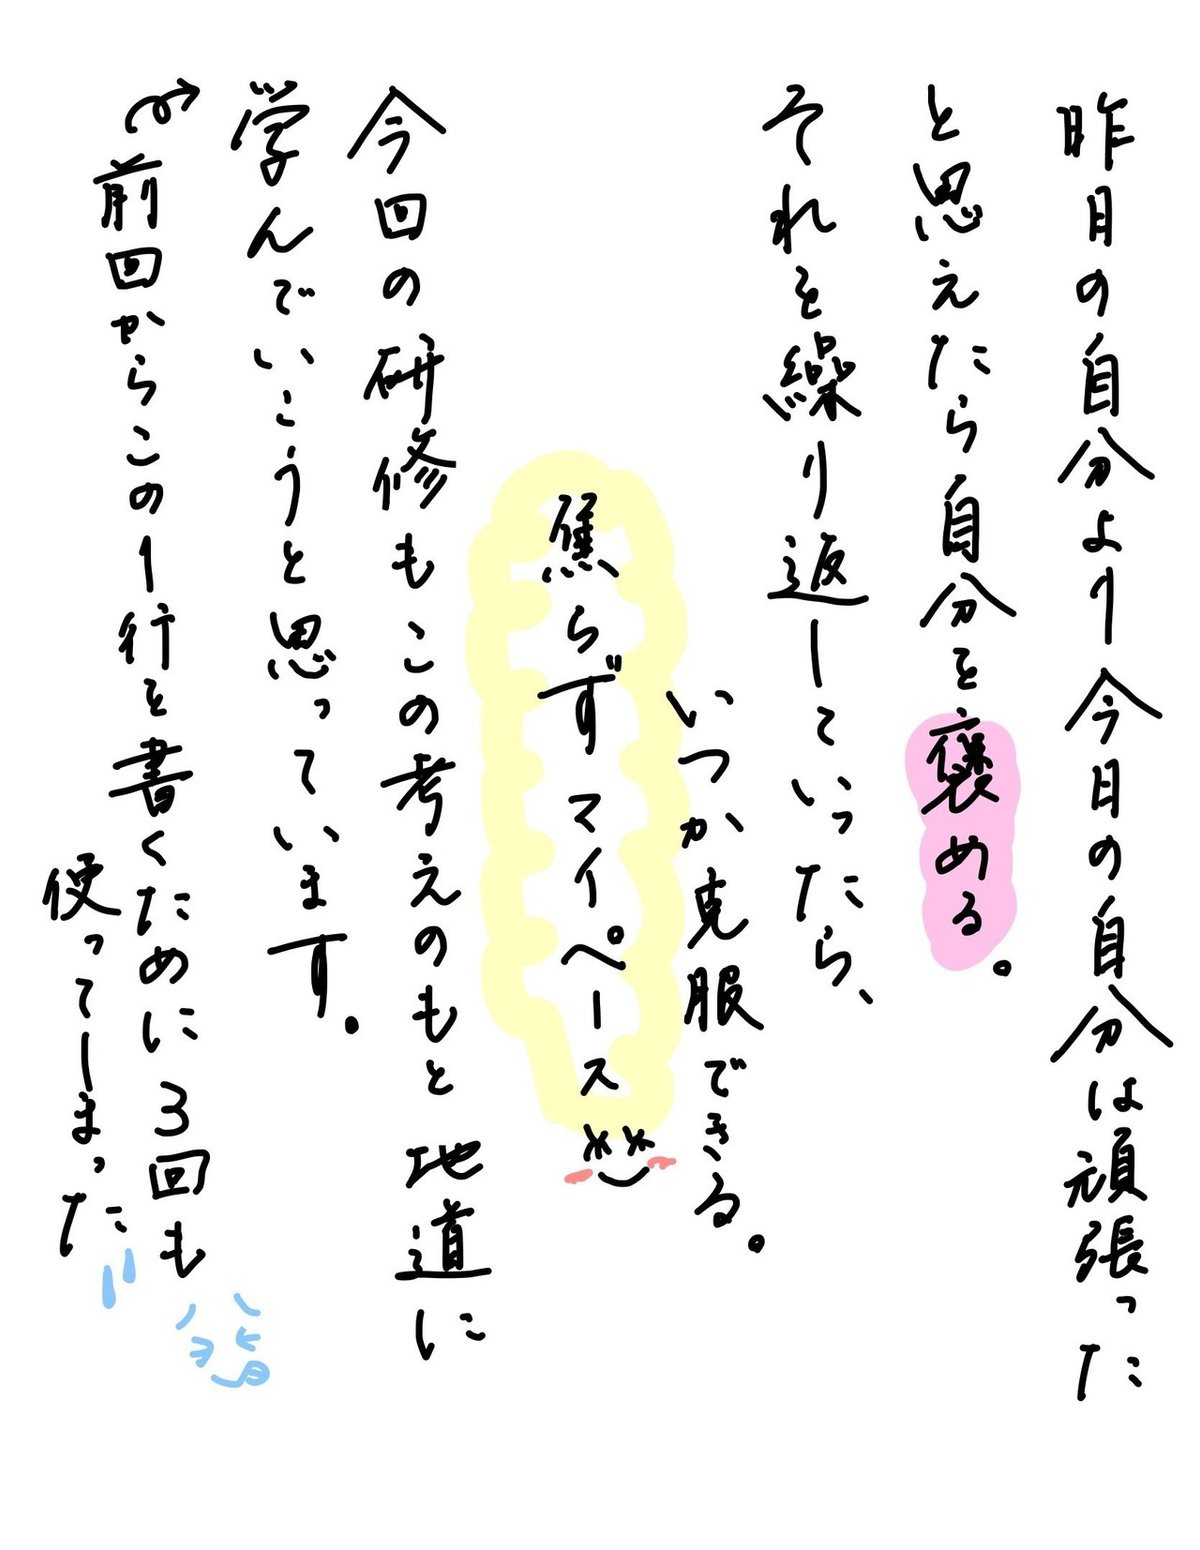 昨日の自分より今日の自分は頑張った
と思えたら自分を褒める。
それを繰り返していったら、
いつか克服できる。
焦らずマイペース
今回の研修もこの考えのもと地道に
学んでいこうと思っています。
前回からこの1行を書くために3回も
使ってしまった